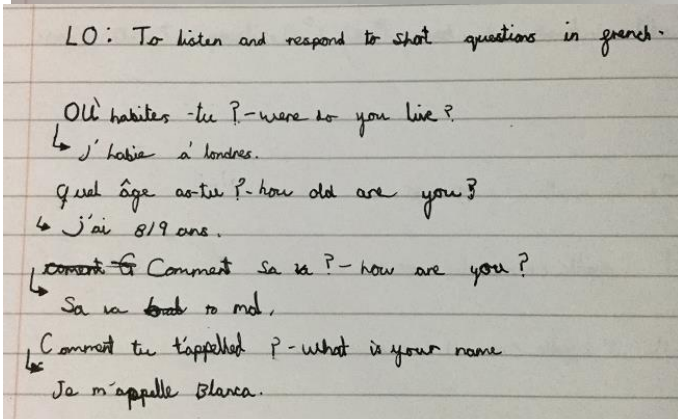 LO: To listen and respond to short questions in french.
OÙ habites -tu ? - were do you live ?
J'habie a' londres.
Quel âge as-tu ? - how old are you ?
J'ai 8/9 ans.
Comment sa va ? - how are you ?
Sa va to mal,
Comment tu t'appelled ? - what is your name
Je m'appelle Blanca.